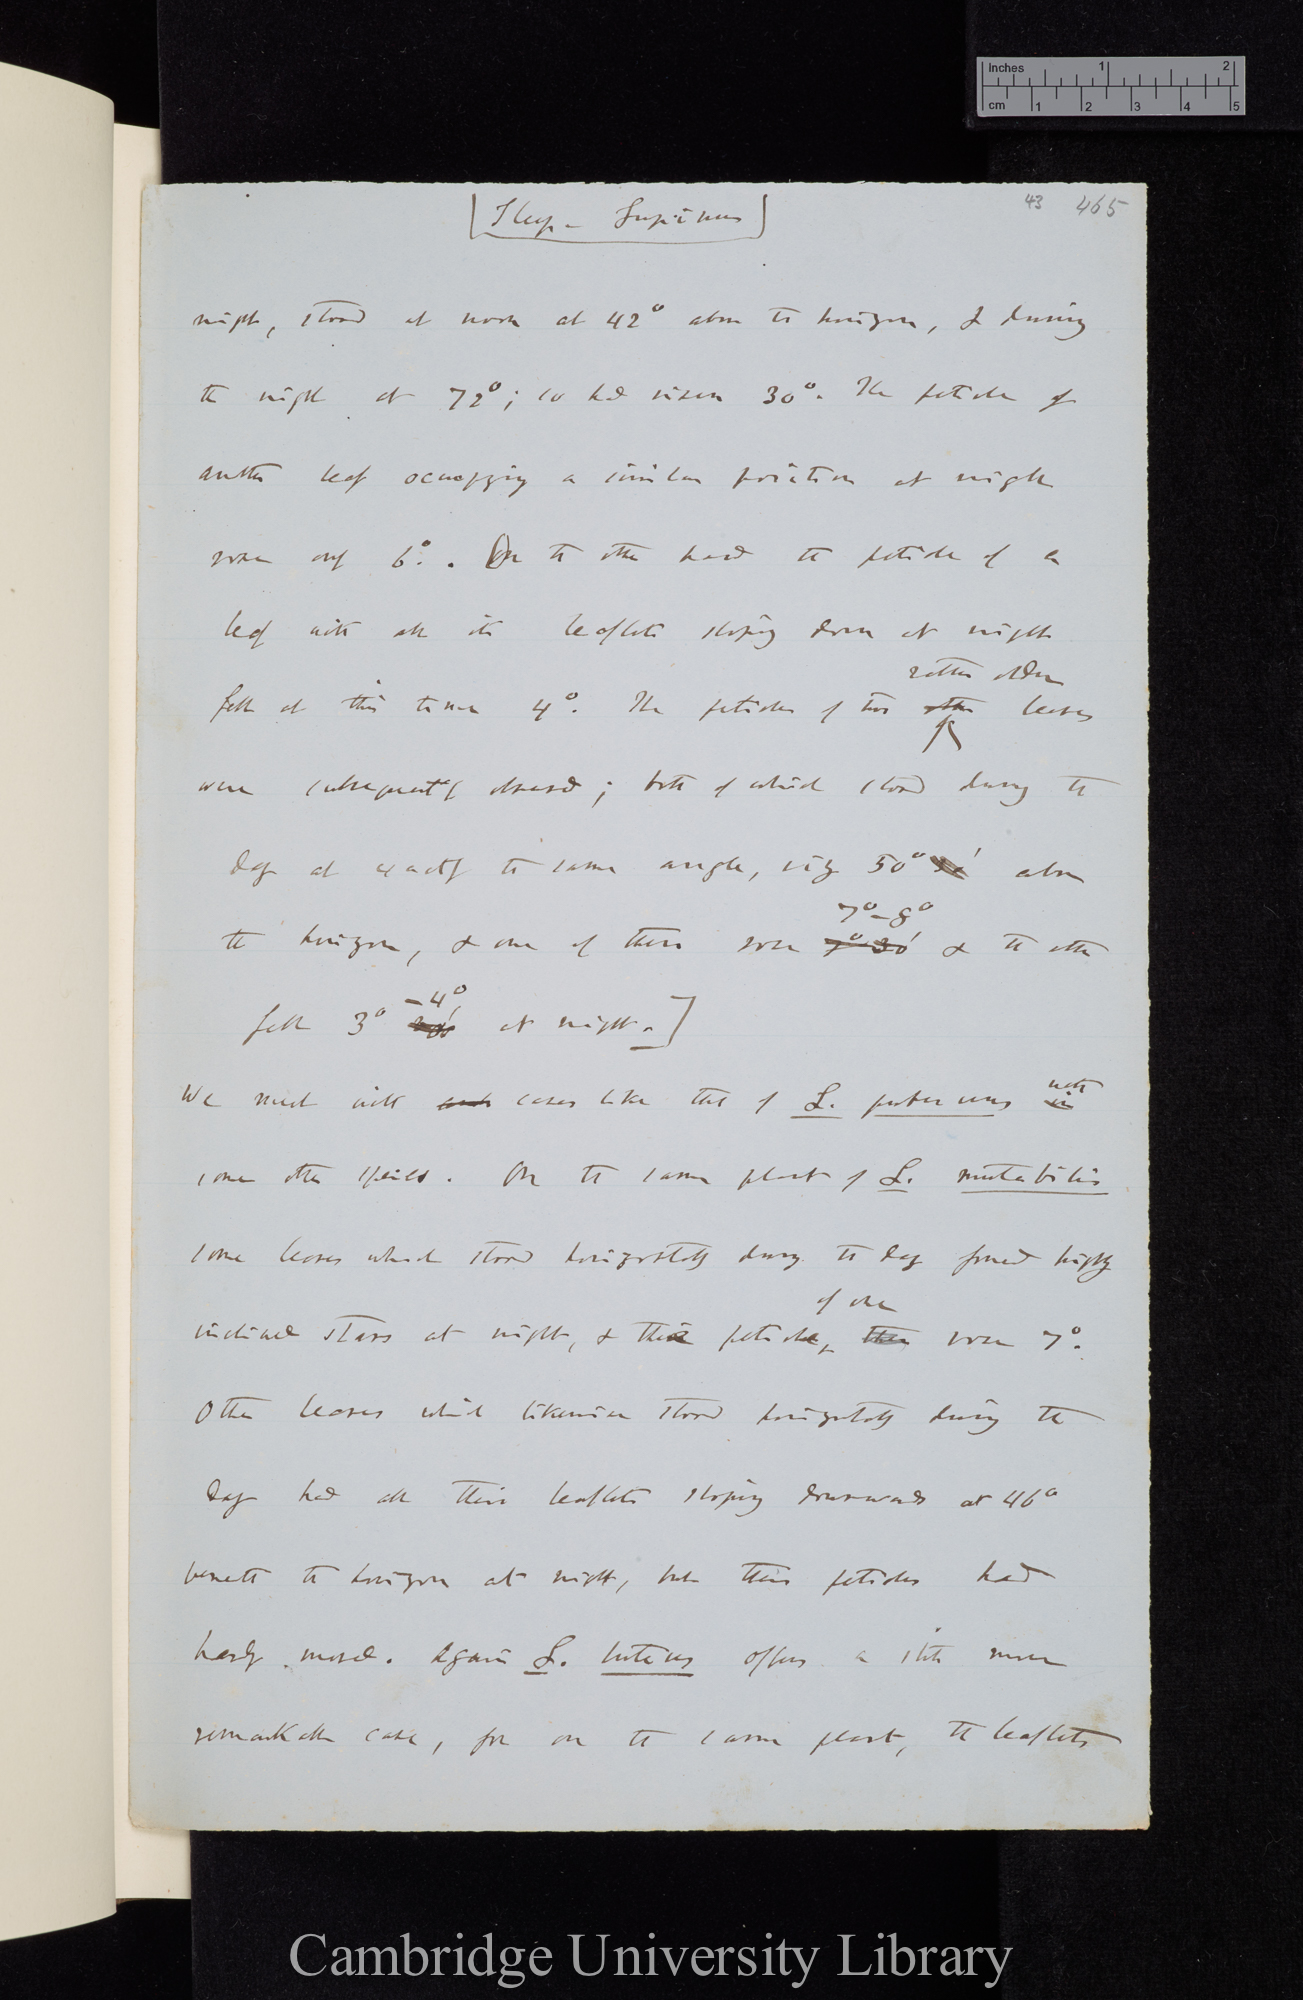 Inches 1 2
cm 1 2 3 4 5
[Sleep — Lupinus]
43 465
night, stood at noon at 42° above the horizon, & during
the night at 72°; so had risen 30°. The petiole of
another leaf occupying a similar position at night
rose only 6°. On the other hand the petiole of a
leaf with all its leaflets sloping down at night
rather older
fell at this time 4°. The petioles of two other leaves
were subsequently observed; both of which stood during the
day at exactly the same angle, viz 50° above
7°–8°
the horizon, & one of them rose 7° 30' & the other
–4°
fell 3° at night.]
with
We meet with such cases like that of L. pubescens in
some other species. On the same plant of L. mutabilis
some leaves which stood horizontally during the day formed highly
of one
inclined stars at night, & the petiole, then rose 7°.
Other leaves which likewise stood horizontally during the
day had all their leaflets sloping downwards at 46°
beneath the horizon at night, but their petioles had
hardly moved. Again L. luteus offers a still more
remarkable case, for on the same plant, the leaflets
Cambridge University Library